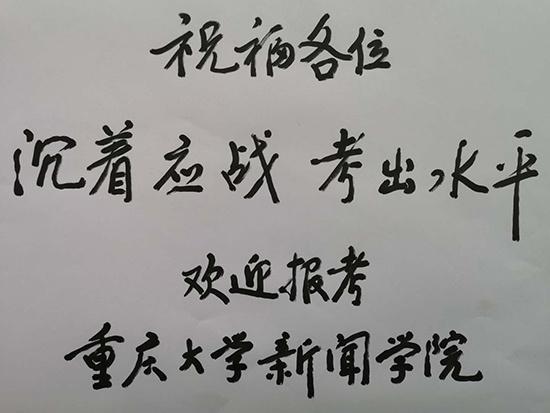 祝福各位
沉着应战 考出水平
欢迎报考
重庆大学新闻学院